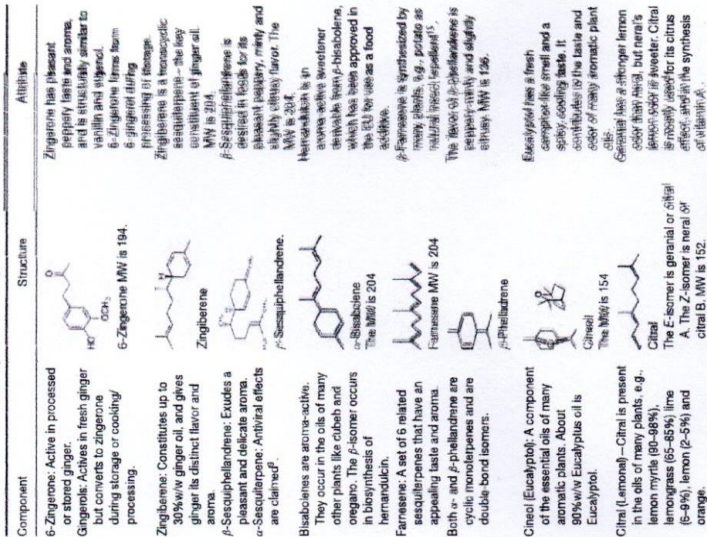 Component Structure Attribute
6-Zingerone: Active in processed
or stored ginger.
Gingerols: Actives in fresh ginger
but converts to zingerone
during storage or cooking/
processing.
HO
OCH3
O
6-Zingerone MW is 194.
Zingerone has pleasant
peppery taste and aroma,
and is structurally similar to
vanillin and eugenol.
6-Zingerone forms from
6-gingerol during
processing or storage.
Zingiberene: Constitutes up to
30%w/w ginger oil, and gives
ginger its distinct flavor and
aroma.
H
Zingiberene
Zingiberene is a monocyclic
sesquiterpene – the key
constituent of ginger oil.
MW is 204.
β-Sesquiphellandrene: Exudes a
pleasant and delicate aroma.
α-Sesquiterpene: Antiviral effects
are claimed
β-Sesquiphellandrene.
desired in foods for its
pleasant peppery, minty and
slightly citrusy flavor. The
MW is 204.
Bisabolenes are aroma-active.
They occur in the oils of many
other plants like cubeb and
oregano. The β-isomer occurs
in biosynthesis of
hernandulcin.
α-Bisabolene
The MW is 204
Hernandulcin is in
aroma-active sweetener
derivable from β-bisabolene,
which has been approved in
the EU for use as a food
additive.
Farnesene: A set of 6 related
sesquiterpenes that have an
appealing taste and aroma.
Farnesene MW is 204
β-Farnesene is synthesized by
many plants, e.g., potato as
natural insect repellent
Both α- and β-phellandrene are
cyclic monoterpenes and are
double-bond isomers.
β-Phelladrene
The flavor of β-phellandrene is
peppery-minty and slightly
citrusy. MW is 136.
Cineol (Eucalyptol): A component
of the essential oils of many
aromatic plants. About
90%w/w Eucalyptus oil is
Eucalyptol.
Cineol
The MW is 154
Eucalyptol has a fresh
camphor-like smell and a
spicy, cooling taste. It
contributes to the taste and
odor of many aromatic plant
oils.
Citral (Lemonal)—Citral is present
in the oils of many plants, e.g.,
lemon myrtle (90–98%),
lemongrass (65–85%) lime
(6–9%), lemon (2–5%) and
orange.
Citral
The E-isomer is geranial or citral
A. The Z-isomer is neral or
citral B. MW is 152.
Geranial has a stronger lemon
odor than neral, but neral's
lemon odor is sweeter. Citral
is mostly used for its citrus
effect, and in the synthesis
of vitamin A.